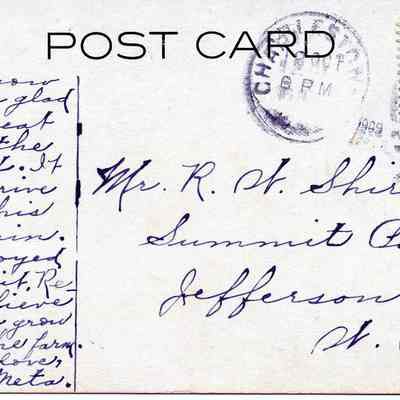 POST CARD
CHARLESTON
OCT
8 PM
1909
now
glad
eat
the
It
rive
his
in.
oyed
it. Re-
lieve
grow
he farm.
lover
Meta.
Mr. R. W. Shir
Summit
Jefferson
W.